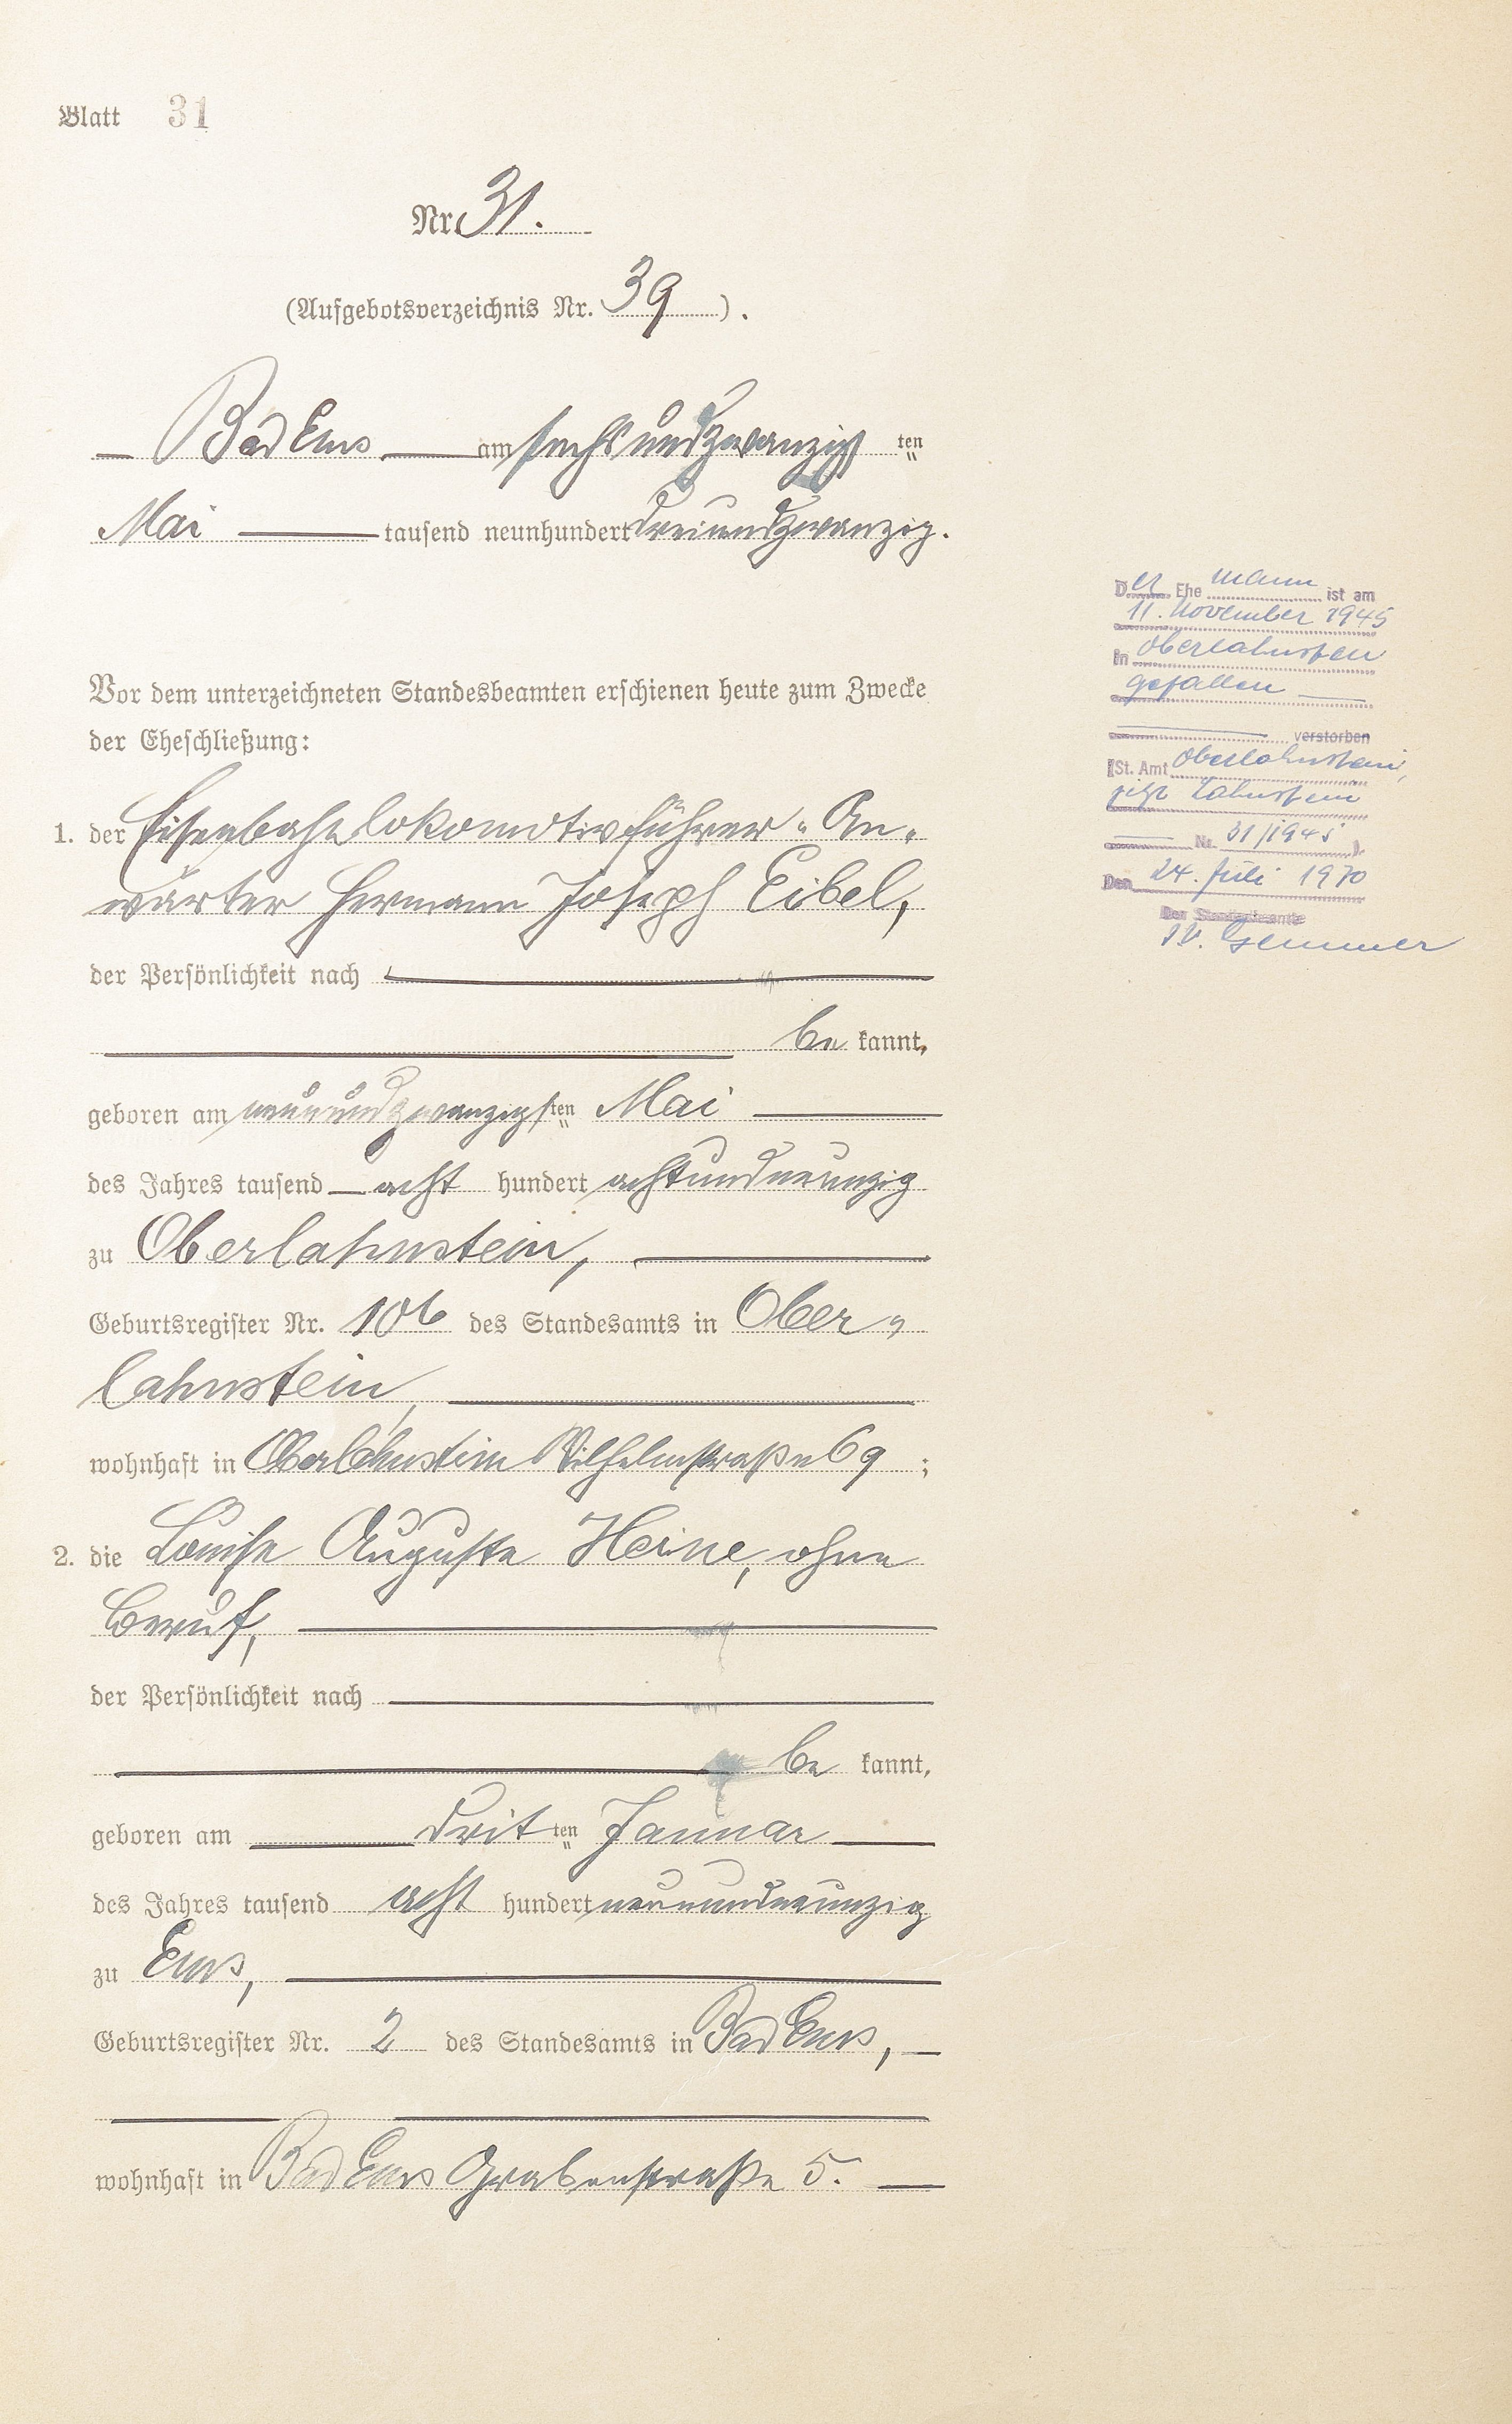 Blatt 31
Nr. 31.
(Aufgebotsverzeichnis Nr. 39).
Bad Ems am sechsundzwanzigsten
Mai tausend neunhundert dreiundzwanzig.
Vor dem unterzeichneten Standesbeamten erschienen heute zum Zwecke
der Eheschließung:
1. der Eisenbahnlokomotivführer-An-
wärter Hermann Joseph Eibel,
der Persönlichkeit nach
be kannt,
geboren am neunundzwanzigsten Mai
des Jahres tausend acht hundert achtundneunzig
zu Oberlahnstein,
Geburtsregister Nr. 106 des Standesamts in Ober-
lahnstein,
wohnhaft in Oberlahnstein Wilhelmstraße 69;
2. die Louise Auguste Heine, ohne
Beruf,
der Persönlichkeit nach
be kannt,
geboren am dritten Januar
des Jahres tausend acht hundert neunundneunzig
zu Ems,
Geburtsregister Nr. 2 des Standesamts in Bad Ems,
wohnhaft in Bad Ems Grabenstraße 5.
Der Ehemann ist am
11. November 1945
in Oberlahnstein
gefallen
verstorben
(St. Amt Oberlahnstein,
jetzt Lahnstein
Nr. 31/1945).
Den 24. Juli 1970
Der Standesbeamte
I.V. Gemmer